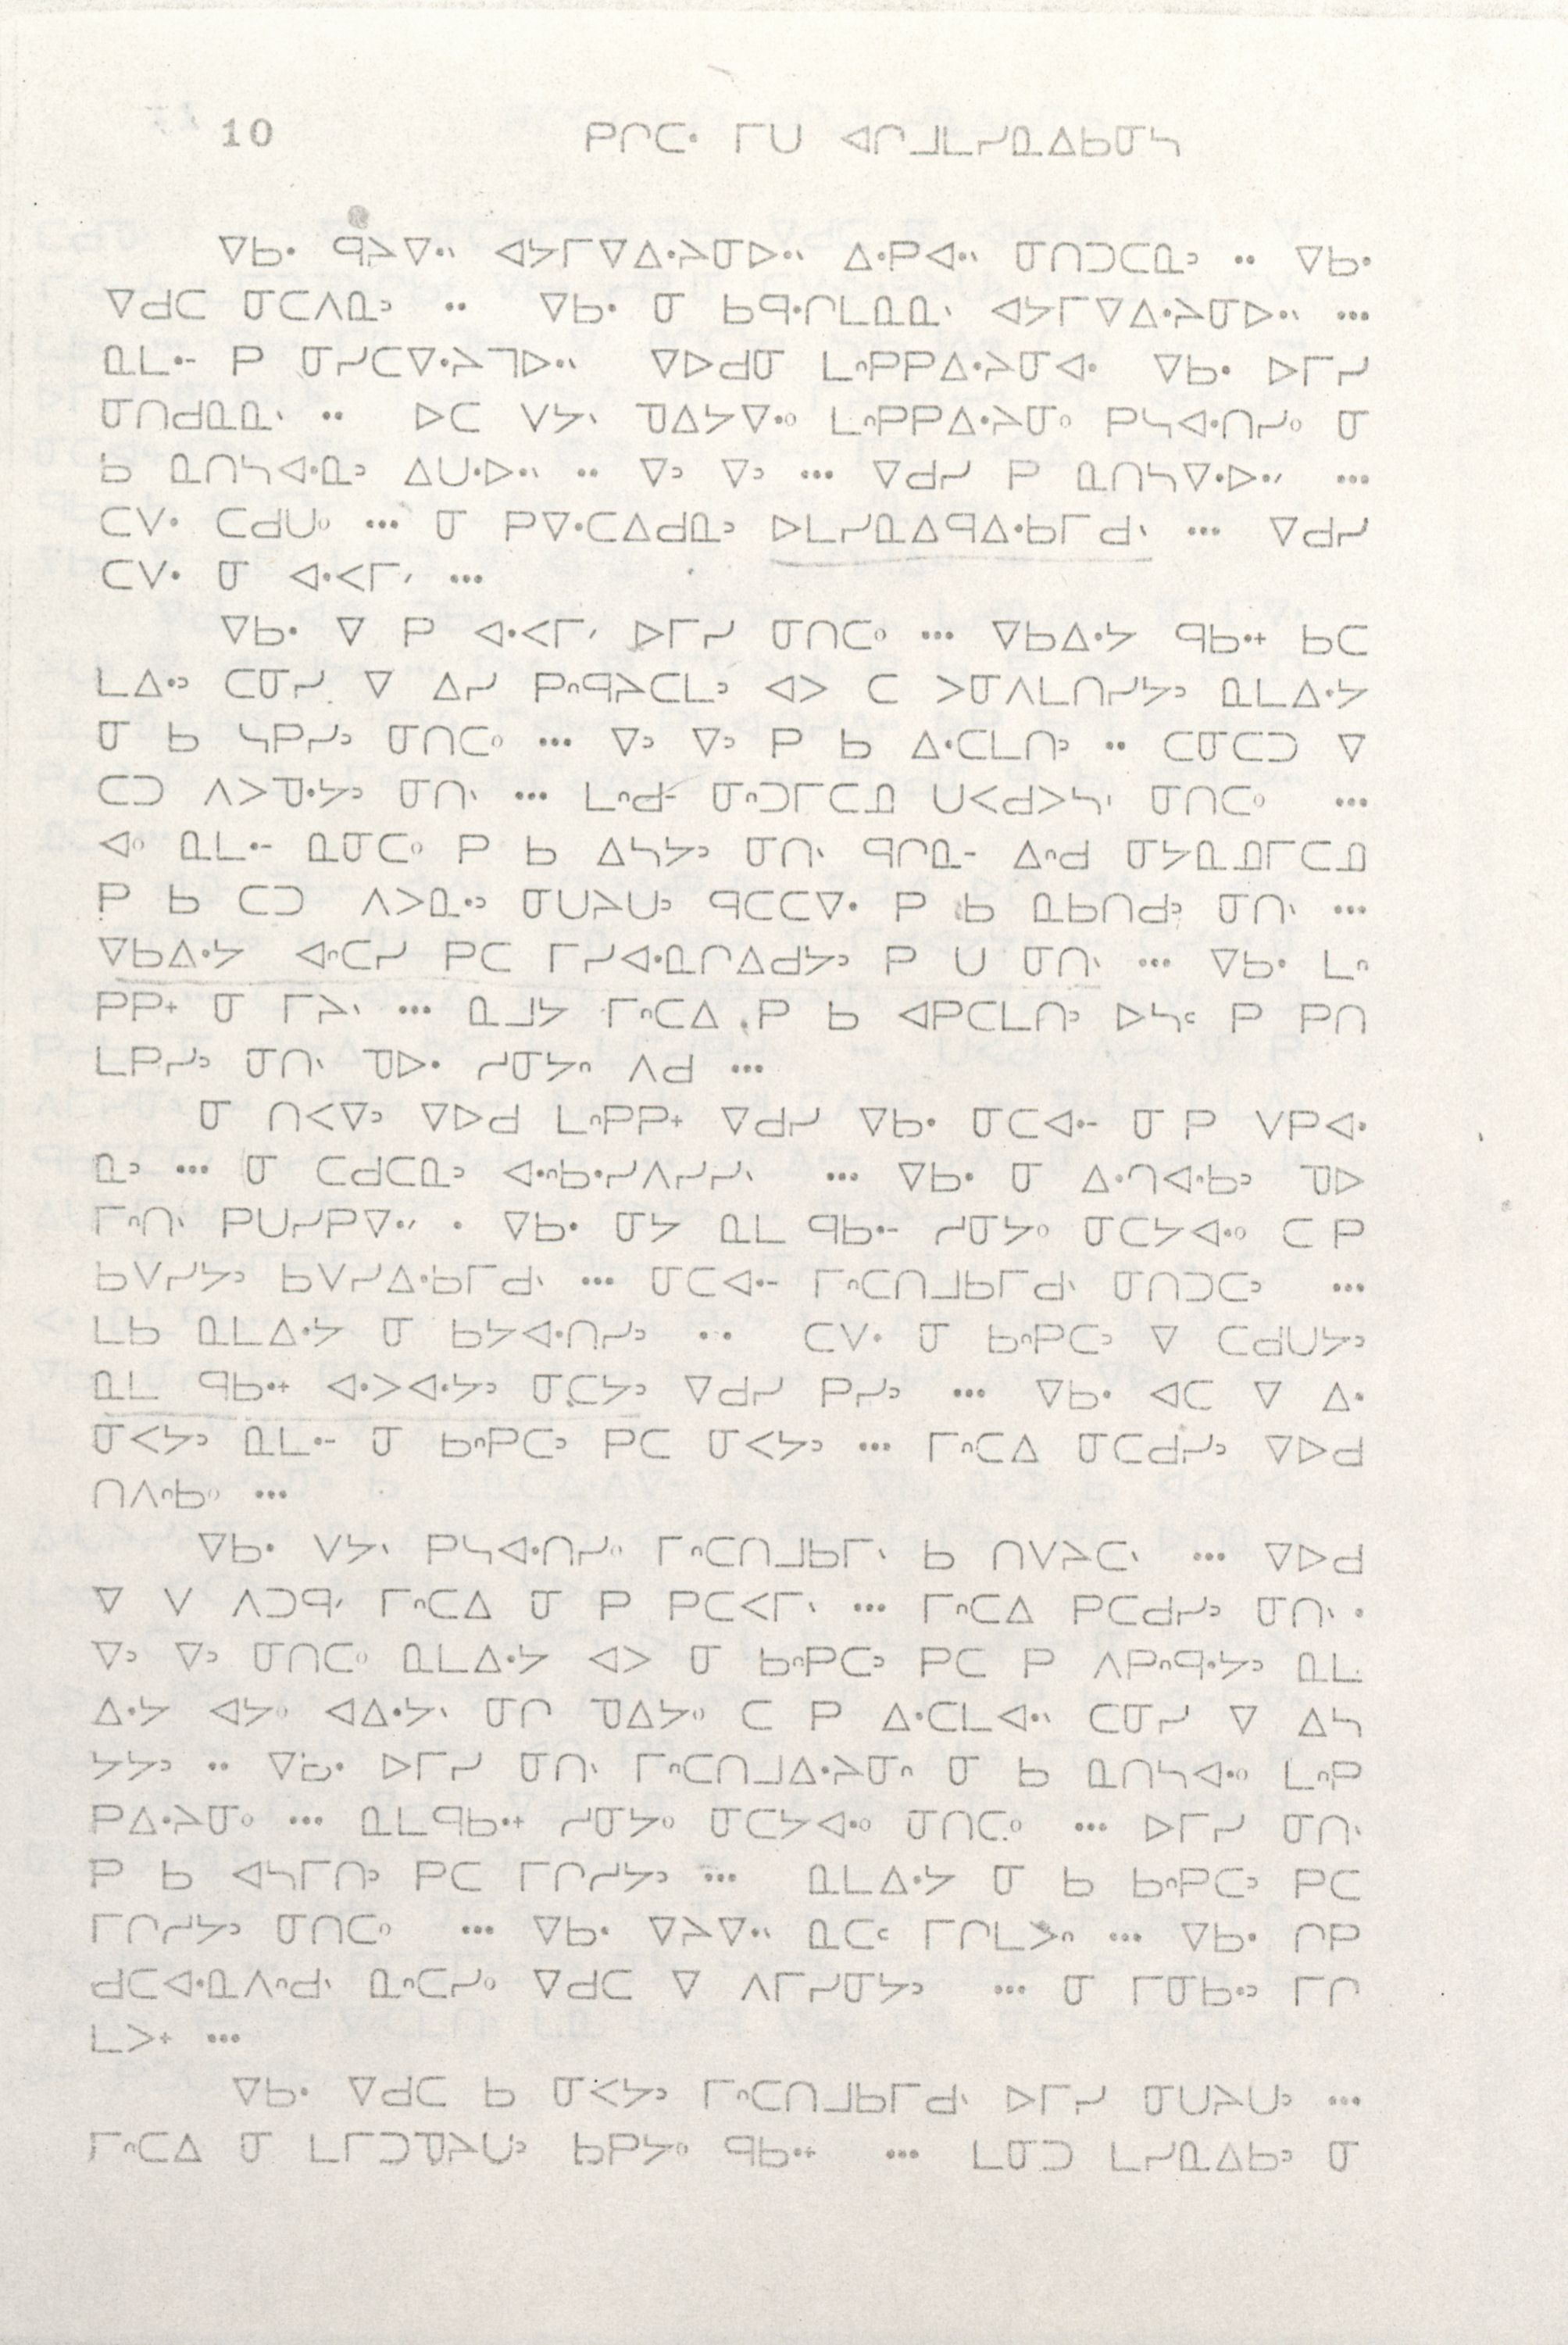 10 ᑭᒋᑕᐧ ᒥᑌ ᐊᒋᒧᒪᓯᓇᐃᑲᓂᓴ
ᐁᑲᐧ ᑫᔨᐁᐧᐦ ᐊᔭᒥᐁᐃᐧᔨᓂᐅᐧᐦ ᐃᐧᑭᐊᐧᐦ ᓂᑎᑐᑕᓇᐣ .. ᐁᑲᐧ
ᐁᑯᑕ ᓂᑕᐱᓇᐣ .. ᐁᑲᐧ ᓂ ᑲᑫᐧᒋᒪᓇᓇᐠ ᐊᔭᒥᐁᐃᐧᔨᓂᐅᐧᐦ ...
ᓇᒪᐧᐨ ᑭ ᓂᓯᑕᐁᐧᔨᒣᐅᐧᐦ ᐁᐅᑯᓂ ᒪᐢᑭᑭᐃᐧᔨᓂᐊᐧ ᐁᑲᐧ ᐅᒥᓯ
ᓂᑎᑯᓇᓇᐠ .. ᐅᑕ ᐯᔭᐠ ᑯᐃᔭᐁᐧᐤ ᒪᐢᑭᑭᐃᐧᔨᓂᐤ ᑭᓴᐊᐧᑎᓯᐤ ᓂ
ᑲ ᓇᑎᓴᐊᐧᓇᐣ ᐃᑌᐧᐅᐧᐦ .. ᐁᐣ ᐁᐣ ... ᐁᑯᓯ ᑭ ᓇᑎᓴᐁᐧᐅᐧᐦ ...
ᑕᐯᐧ ᑕᑯᑌᐤ ... ᓂ ᑭᐁᐧᑕᐃᑯᓇᐣ ᐅᒪᓯᓇᐃᑫᐃᐧᑲᒥᑯᐠ ... ᐁᑯᓯ
ᑕᐯᐧ ᓂ ᐊᐧᐸᒥᐟ ...
ᐁᑲᐧ ᐁ ᑭ ᐊᐧᐸᒥᐟ ᐅᒥᓯ ᓂᑎᑕᐤ ... ᐁᑲᐃᐧᔭ ᑫᑲᐧᐩ ᑲᑕ
ᒪᐃᐧᐣ ᑕᓂᓯ ᐁ ᐃᓯ ᑭᐢᑫᔨᑕᒪᐣ ᐊᐳ ᑕ ᐳᓂᐱᒪᑎᓯᔭᐣ ᓇᒪᐃᐧᔭ
ᓂ ᑲ ᓴᑭᓯᐣ ᓂᑎᑕᐤ ... ᐁᐣ ᐁᐣ ᑭ ᑲ ᐃᐧᑕᒪᑎᐣ .. ᑕᓂᑕᑐ ᐁ
ᑕᑐ ᐱᐳᓀᐧᔭᐣ ᓂᑎᐠ ... ᒪᐢᑯᐨ ᓂᐢᑐᒥᑕᓇ ᑌᐸᑯᐳᓴᑊ ᓂᑎᑕᐤ ...
ᐊᐤ ᓇᒪᐧᐨ ᓇᓂᑕᐤ ᑭ ᑲ ᐃᓴᔭᐣ ᓂᑎᐠ ᑫᒋᓇᐨ ᐃᐢᑯ ᓂᔭᓇᓇᒥᑕᓇ
ᑭ ᑲ ᑕᑐ ᐱᐳᓇᐧᐣ ᓂᑌᔨᑌᐣ ᑫᑕᑕᐁᐧ ᑭ ᑲ ᓇᑲᑎᑯᐣ ᓂᑎᐠ ...
ᐁᑲᐃᐧᔭ ᐊᐧᐢᑕᓯ ᑭᑕ ᒥᓯᐊᐧᓇᒋᐃᑯᔭᐣ ᑭ ᑌ ᓂᑎᐠ ... ᐁᑲᐧ ᒪᐢ
ᑭᑭᐩ ᓂ ᒥᔨᐠ ... ᓇᒧᔭ ᒥᐢᑕᐃ ᑭ ᑲ ᐊᑭᑕᒪᑎᐣ ᐅᓴᒼ ᑭ ᑭᑎ
ᒪᑭᓯᐣ ᓂᑎᐠ ᑯᐅᐧ ᓯᓂᔭᐢ ᐱᑯ ...
ᓂ ᑎᐸᐁᐣ ᐁᐅᑯ ᒪᐢᑭᑭᐩ ᐁᑯᓯ ᐁᑲᐧ ᓂᑕᐊᐧᐨ ᓂ ᑭ ᐯᑭᐊᐧ
ᓇᐣ ... ᓂ ᑕᑯᑕᓇᐣ ᐊᐧᐢᑲᐧᓯᐱᓯᓯᐠ ... ᐁᑲᐧ ᓂ ᐃᐧᒉᐊᐧᑲᐣ ᑯᐅ
ᒥᐢᑎᐠ ᑭᑌᓯᑭᐁᐧᐟ . ᐁᑲᐧ ᓂᔭ ᓇᒪ ᑫᑲᐧᐨ ᓯᓂᔭᐤ ᓂᑕᔭᐊᐧᐤ ᑕ ᑭ
ᑲᐯᓯᔭᐣ ᑲᐯᓯᐃᐧᑲᒥᑯᐠ ... ᓂᑕᐊᐧᐨ ᒥᐢᑕᑎᒧᑲᒥᑯᐠ ᓂᑎᑐᑕᐣ ...
ᒪᑲ ᓇᒪᐃᐧᔭ ᓂ ᑲᔭᐊᐧᑎᓯᐣ .. ᑕᐯᐧ ᓂ ᑲᐢᑭᑕᐣ ᐁ ᑕᑯᑌᔭᐣ
ᓇᒪ ᑫᑲᐧᐩ ᐊᐧᐳᐊᐧᔭᐣ ᓂᑕᔭᐣ ᐁᑯᓯ ᑭᓯᐣ ... ᐁᑲᐧ ᐊᑕ ᐁ ᐃᐧ
ᓂᐸᔭᐣ ᓇᒪᐧᐨ ᓂ ᑲᐢᑭᑕᐣ ᑭᑕ ᓂᐸᔭᐣ ... ᒥᐢᑕᐃ ᓂᑕᑯᓯᐣ ᐁᐅᑯ
ᑎᐱᐢᑲᐤ ...
ᐁᑲᐧ ᐯᔭᐠ ᑭᓴᐊᐧᑎᓯᐤ ᒥᐢᑕᑎᒧᑲᒥᐠ ᑲ ᑎᐯᔨᑕᐠ ... ᐁᐅᑯ
ᐁ ᐯ ᐱᑐᑫᐟ ᒥᐢᑕᐃ ᓂ ᑭ ᑭᑕᐸᒥᐠ ... ᒥᐢᑕᐃ ᑭᑕᑯᓯᐣ ᓂᑎᐠ .
ᐁᐣ ᐁᐣ ᓂᑎᑕᐤ ᓇᒪᐃᐧᔭ ᐊᐳ ᓂ ᑲᐢᑭᑕᐣ ᑭᑕ ᑭ ᐱᑭᐢᑫᐧᔭᐣ ᓇᒪ
ᐃᐧᔭ ᐊᔭᐤ ᐊᐃᐧᔭᐠ ᓂᒋ ᑯᐃᔭᐤ ᑕ ᑭ ᐃᐧᑕᒪᐊᐧᐦ ᑕᓂᓯ ᐁ ᐃᓴ
ᔭᔭᐣ .. ᐁᑲᐧ ᐅᒥᓯ ᓂᑎᐠ ᒥᐢᑕᑎᒧᐃᐧᔨᓂᐢ ᓂ ᑲ ᓇᑎᓴᐊᐧᐤ ᒪᐢᑭ
ᑭᐃᐧᔨᓂᐤ ... ᓇᒪᑫᑲᐧᐩ ᓯᓂᔭᐤ ᓂᑕᔭᐊᐧᐤ ᓂᑎᑕᐤ ... ᐅᒥᓯ ᓂᑎᐠ
ᑭ ᑲ ᐊᓴᒥᑎᐣ ᑭᑕ ᒥᒋᓯᔭᐣ ... ᓇᒪᐃᐧᔭ ᓂ ᑲ ᑲᐢᑭᑕᐣ ᑭᑕ
ᒥᒋᓯᔭᐣ ᓂᑎᑕᐤ ... ᐁᑲᐧ ᐁᔨᐁᐧᐦ ᓇᑕᒼ ᒥᒋᒪᔪᐢ ... ᐁᑲᐧ ᒋᑭ
ᑯᑕᐊᐧᓇᐱᐢᑯᐠ ᓇᐢᑕᓯᐤ ᐁᑯᑕ ᐁ ᐱᒥᓯᓂᔭᐣ ... ᓂ ᒥᓂᑲᐧᐣ ᒥᒋ
ᒪᐳᐩ ...
ᐁᑲᐧ ᐁᑯᑕ ᑲ ᓂᐸᔭᐣ ᒥᐢᑕᑎᒧᑲᒥᑯᐠ ᐅᒥᓯ ᓂᑌᔨᑌᐣ ...
ᒥᐢᑕᐃ ᓂ ᒪᒥᑐᓀᔨᑌᐣ ᑲᑭᔭᐤ ᑫᑲᐧᐩ ... ᒪᓂᑐ ᒪᓯᓇᐃᑲᐣ ᓂ